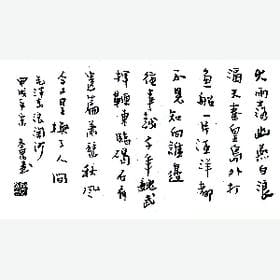 大雨落幽燕白浪
滔天秦皇島外打
魚船一片汪洋都
不見知向誰邊
往事越千年魏武
揮鞭東臨碣石有
遺篇蕭瑟秋風
今又是換了人間
毛澤東浪淘沙
甲戌年